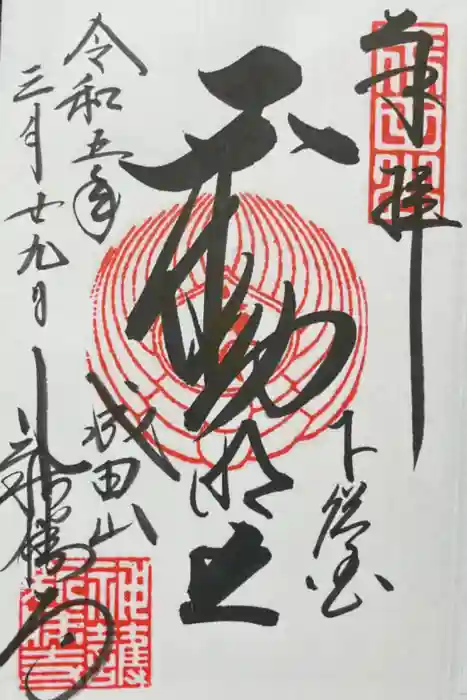 奉拝
下総国
不動明王
成田山
新勝寺
令和五年
三月廿九日
成田山
神護
新勝寺